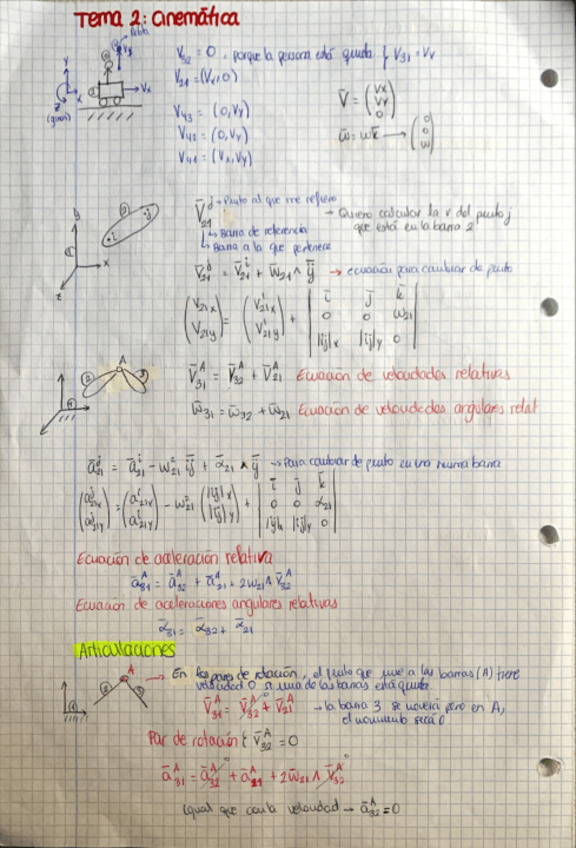 Tema 2: Cinemática
V₃₂ = 0, porque la persona está quieta } V₃₁ = Vᵥ
V₂₁ = (Vx, 0)
V₄₃ = (0, Vy)
V₄₂ = (0, Vy)
V₄₁ = (Vx, Vy)
V̄ = (Vx Vy 0)
ω̄ = ωk̄ → (0 0 ω)
Vy
Vx
(giro)
V̄₂₁ʲ → Punto al que me refiero
→ Barra de referencia
→ Barra a la que pertenece
→ Quiero calcular la v del punto j
que está en la barra 2
V̄₂₁ʲ = V̄₂₁ⁱ + ω̄₂₁ ∧ īj → ecuación para cambiar de punto
(V₂₁x V₂₁y) = (Vⁱ₂₁x Vⁱ₂₁y) + | ī j̄ k̄ |
| 0 0 ω₂₁ |
| |ij|x |ij|y 0 |
V̄₃₁ᴬ = V̄₃₂ᴬ + V̄₂₁ᴬ Ecuación de velocidades relativas
ω̄₃₁ = ω̄₃₂ + ω̄₂₁ Ecuación de velocidades angulares relat
ā₂₁ʲ = ā₂₁ⁱ - ω²₂₁ īj + ᾱ₂₁ ∧ īj → Para cambiar de punto en una misma barra
(aʲ₂₁x aʲ₂₁y) = (aⁱ₂₁x aⁱ₂₁y) - ω²₂₁ (|ij|x |ij|y) + | ī j̄ k̄ |
| 0 0 α₂₁ |
| |ij|x |ij|y 0 |
Ecuación de aceleración relativa
ā₃₁ᴬ = ā₃₂ᴬ + ā₂₁ᴬ + 2ω₂₁ ∧ V̄₃₂ᴬ
Ecuación de aceleraciones angulares relativas
ᾱ₃₁ = ᾱ₃₂ + ᾱ₂₁
Articulaciones
→ En los pares de rotación, el punto que une a las barras (A) tiene
velocidad 0 si una de las barras está quieta.
V̄₃₁ᴬ = V̄₃₂ᴬ + V̄₂₁ᴬ → la barra 3 se moverá pero en A,
el movimiento será 0
Par de rotación { V̄₃₂ᴬ = 0
ā₃₁ᴬ = ā₃₂ᴬ + ā₂₁ᴬ + 2ω̄₂₁ ∧ V̄₃₂ᴬ
igual que con la velocidad → ā₃₂ᴬ = 0